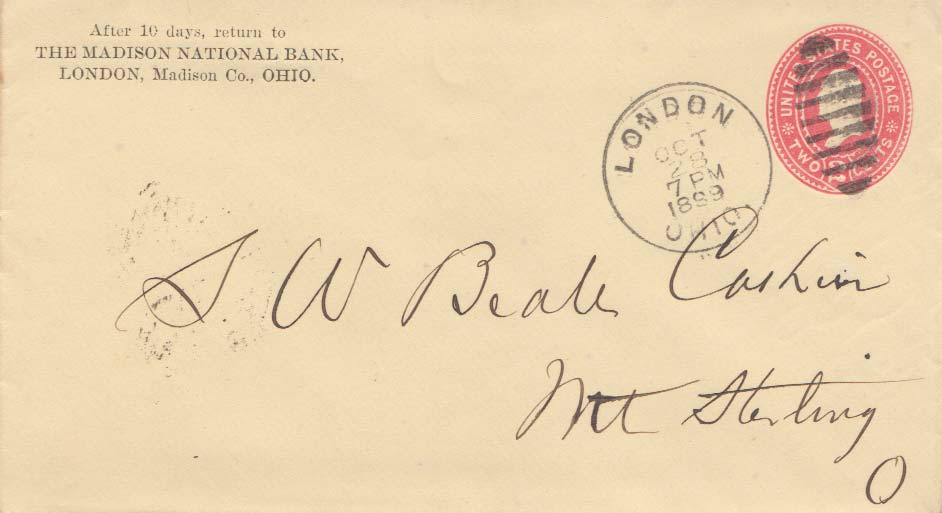 After 10 days, return to
THE MADISON NATIONAL BANK,
LONDON, Madison Co., OHIO.
UNITED STATES POSTAGE
TWO CENTS
LONDON
OCT
28
7 PM
1899
OHIO.
S W Beale Cashier
Mt Sterling
O